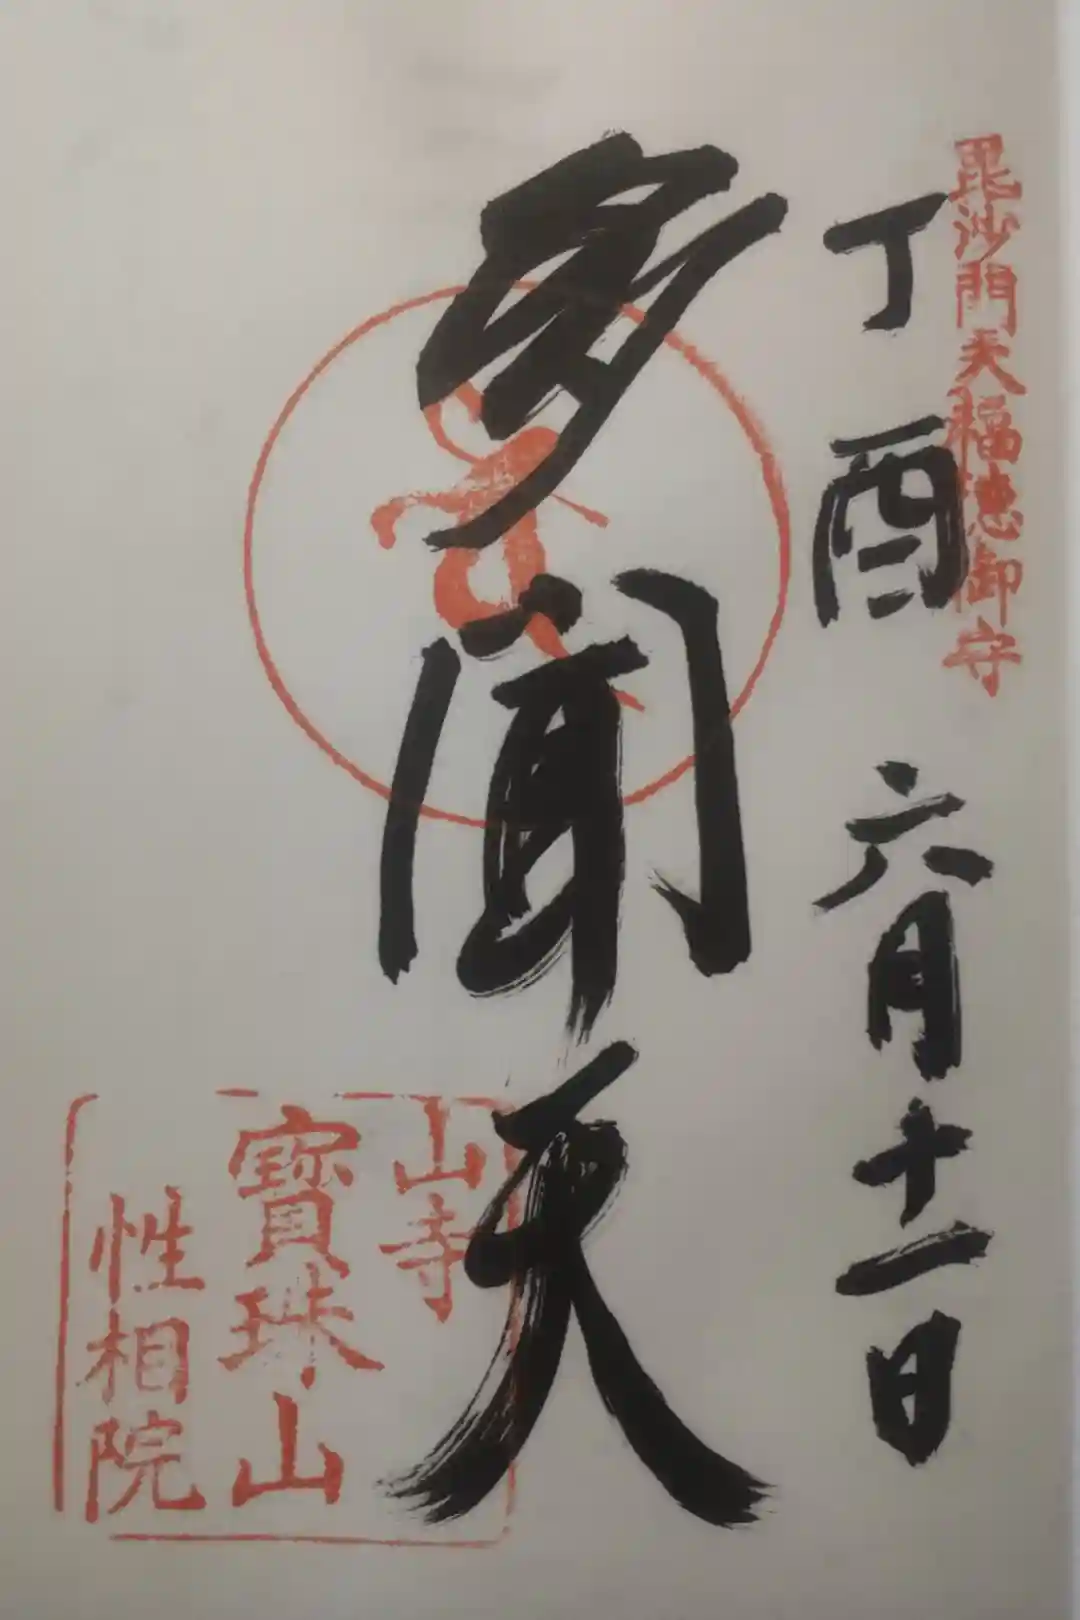 毘沙門天福徳御守
丁酉 六月十一日
多聞天
山寺
寶珠山
性相院